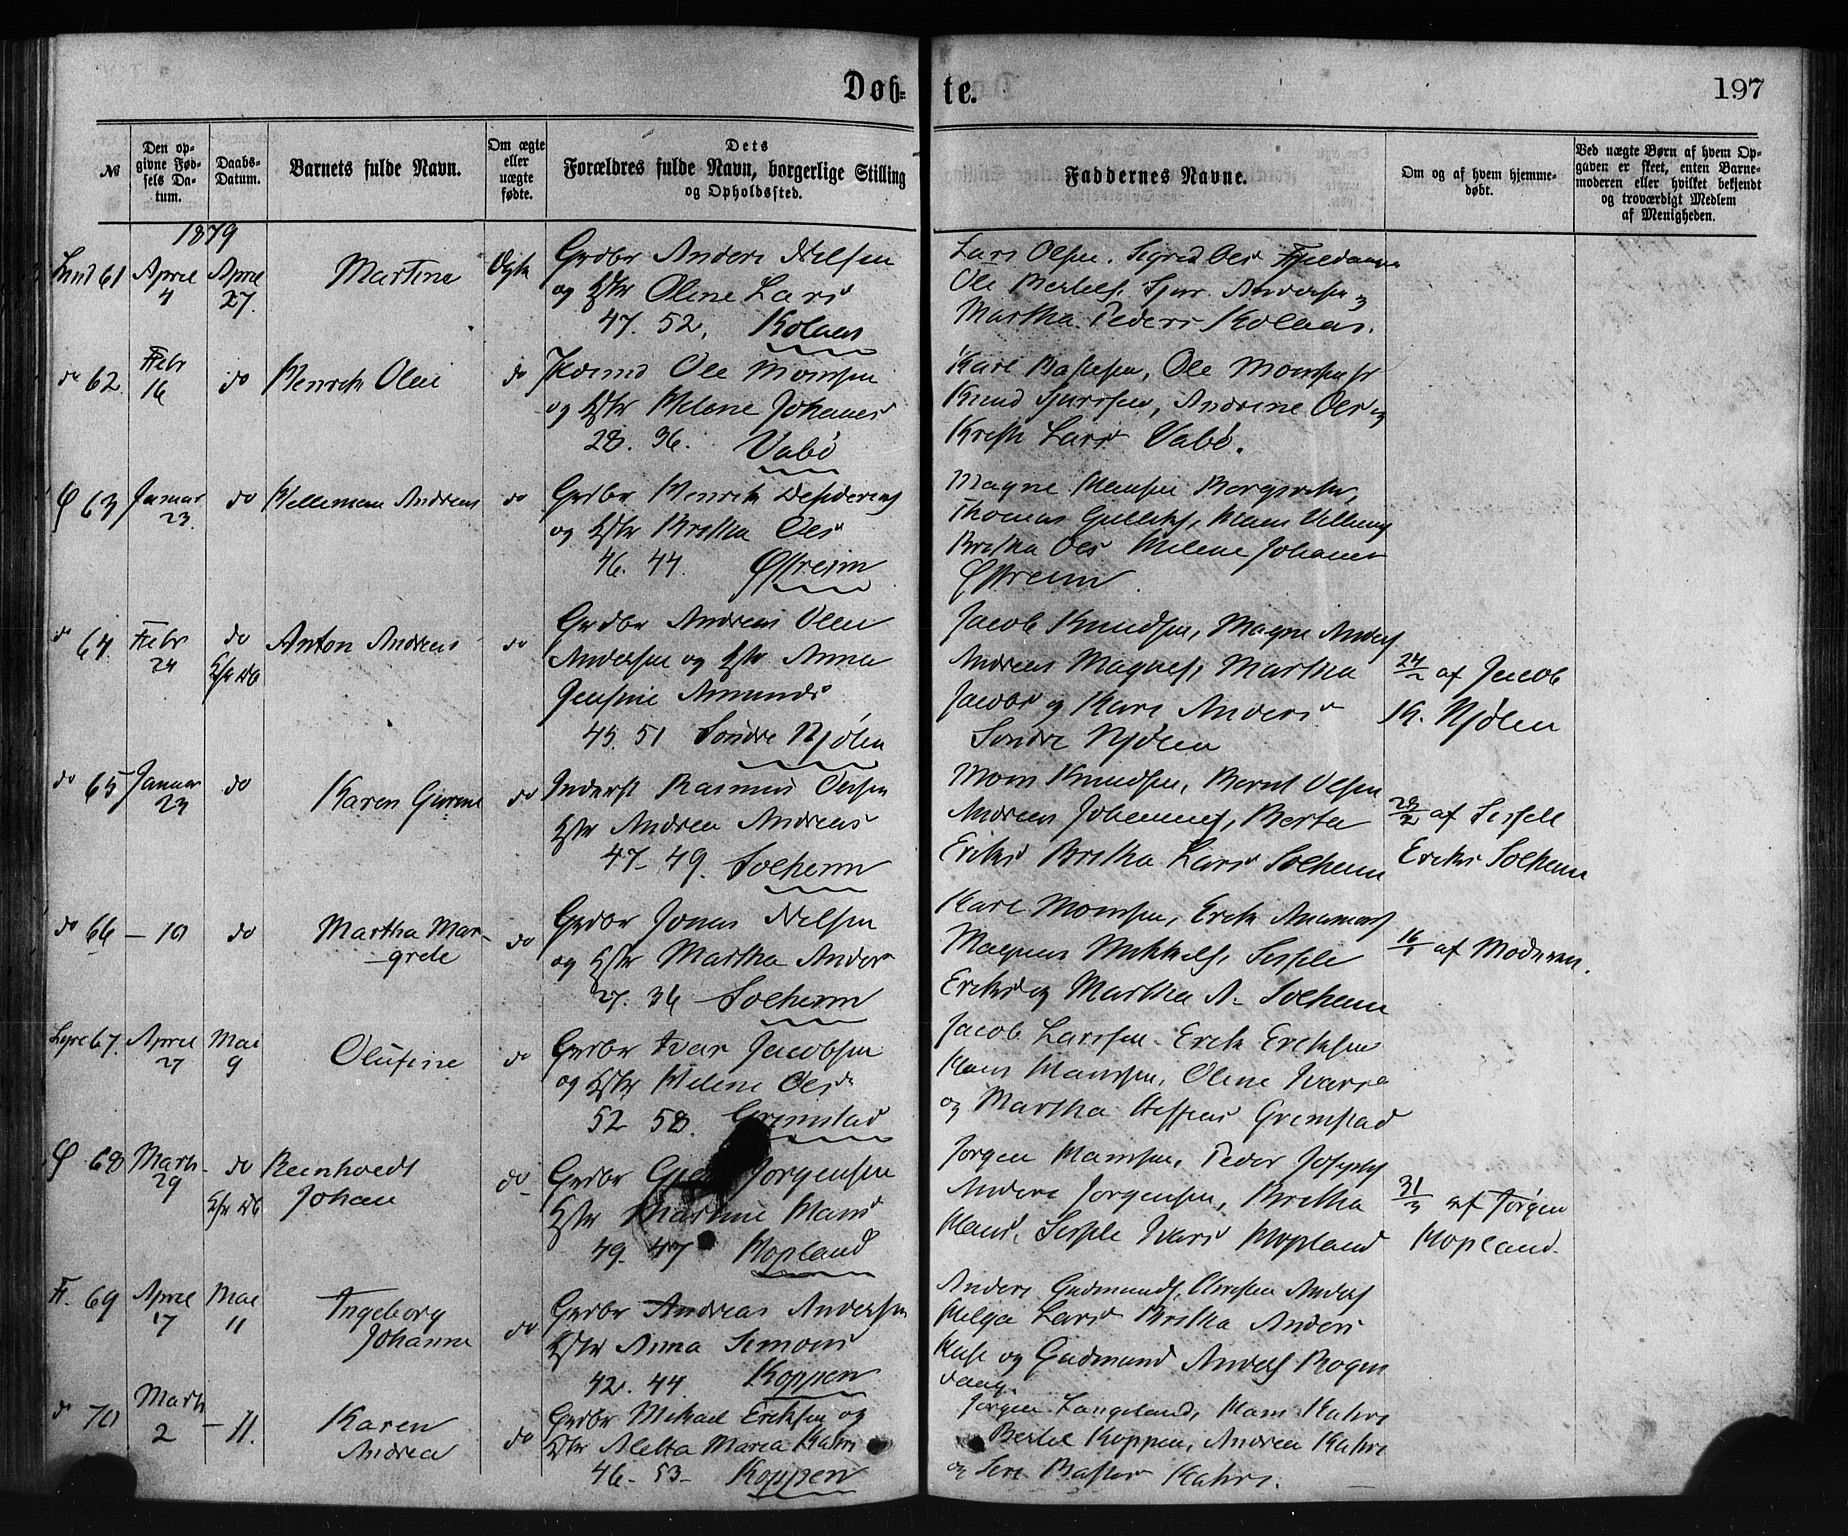 Døb-
te.
197
№
Den op-
givne Fød-
sels Da-
tum.
Daabs-
Datum.
Barnets fulde Navn.
Om ægte
eller
uægte
fødte.
Dets
Forældres fulde Navn, borgerlige Stilling
og Opholdssted.
Faddernes Navne.
Om og af hvem hjemme-
døbt.
Ved uægte Børn af hvem Op-
gaven er skeet, enten Barne-
moderen eller hvilket bekjendt
og troværdigt Medlem
af Menigheden.
1879
61 April 4 April 27. Martine Ægte
Grdbr Anders Nilsen
og Hstr Oline Lars
47. 52. Kolaas
Lars Olsen.
Ole Bertels. Sjur Andersen og
Martha Peders Kolaas.
do 62. Febr 16 do Henrik Olai do
Ole Monsen
og Hstr Helene Johanes
28. 36. Vabø
Karl Bastesen, Ole Monsen
Knud Sjurssen, Andrine Ols og
Lars Vabø.
63 Januar 23. do Andreas do
Grdbr Henrik
og Hstr Britha Ols
46. 44. Østreim
Magne Hansen
Thomas
Britha Ols Helene Johanes
Østreim
do 64. Febr 24 do Anton Andreas do
Grdbr Andreas Olai
Andersen og Hstr Anna
Jensine Amunds
45. 51 Søndre Njølen
Jacob Knudsen, Magne Anders
Andreas Magnes, Martha
Jacobs og Kari Anders
Søndre Njølen
24/2 af Jacob
K. Njølen
do 65 Januar 23 do Karen Gurine do
Inderst Rasmus Olsen
Hstr Andrea Andreas
47- 49. Solheim
Mons Knudsen, Bernt Olsen
Andreas Johannes, Berta
Eriks Britha Lars Solheim
28/2 af Sissell
Eriks Solheim
do 66 - 10 do Martha Mar-
grete do
Grdbr Jonas Nilsen
og Hstr Martha Anders
27. 36 Solheim
Karl Monsen, Erik
Magnus Mikkels, Sissele
Eriks og Martha A- Solheim
16/1 af Moderen.
67. April 27 Mai 9 Olufine do
Grdbr Ivar Jacobsen
og Hstr Helene Ols
52 58. Grimstad
Jacob Larssen. Erik Eriksen
Hans Hanssen, Oline Ivars
og Martha Steffens Grimstad
68 Marts 29 do Reinholdt
Johan do
Grdbr Jørgensen
Hstr Martine Hans
49. 47 Hopland
Jørgen Hanssen, Peder Josephs
Anders Jørgensen, Britha
Hans, Sissele Ivars Hopland
31/3 af Jørgen
Hopland.
F. 69 April 17 Mai 11 Ingeborg
Johanna do
Grdbr Andreas Andersen
Hstr Anna Simons
42. 44. Koppen
Anders Gudmunds, Anders
Helga Lars Britha Anders
og Gudmund Anders
do 70 Marts 2 - 11. Karen
Andrea do
Grdbr Mikael Eriksen og
Hstr Aletta Maria Hans
46- 53- Koppen
Jørgen Langeland, Hans Kahrs
Bertel Koppen, Andrea Kahrs
og Kahrs.